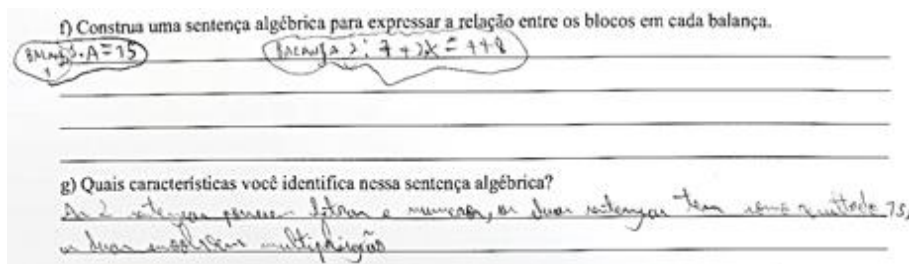 f) Construa uma sentença algébrica para expressar a relação entre os blocos em cada balança.
A=75 7+2X=
g) Quais características você identifica nessa sentença algébrica?
As 2 sentenças possuem letras e numeros, as duas sentenças tem como resultado 75,
as duas envolvem multiplicação